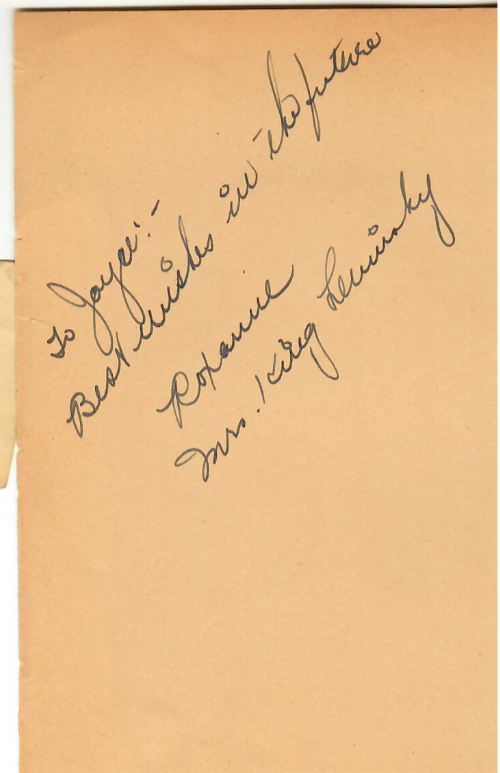 To Joyce:-
Best Wishes in the future
Roxanne
Mrs. King Levinsky